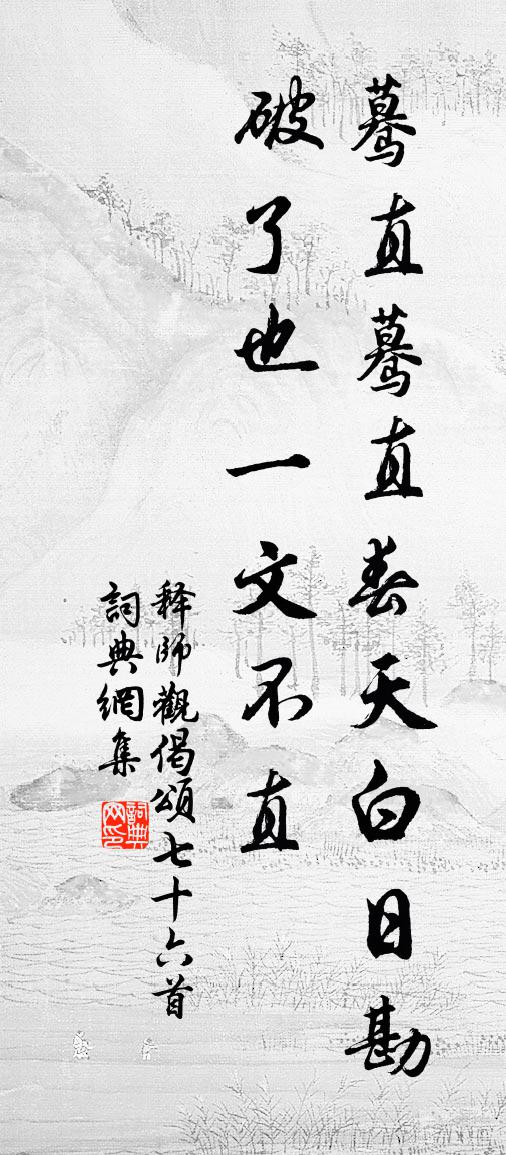 驀直驀直春天白日勘
破了也一文不直
释師觀偈頌七十六首
詞典網集
詞典网印